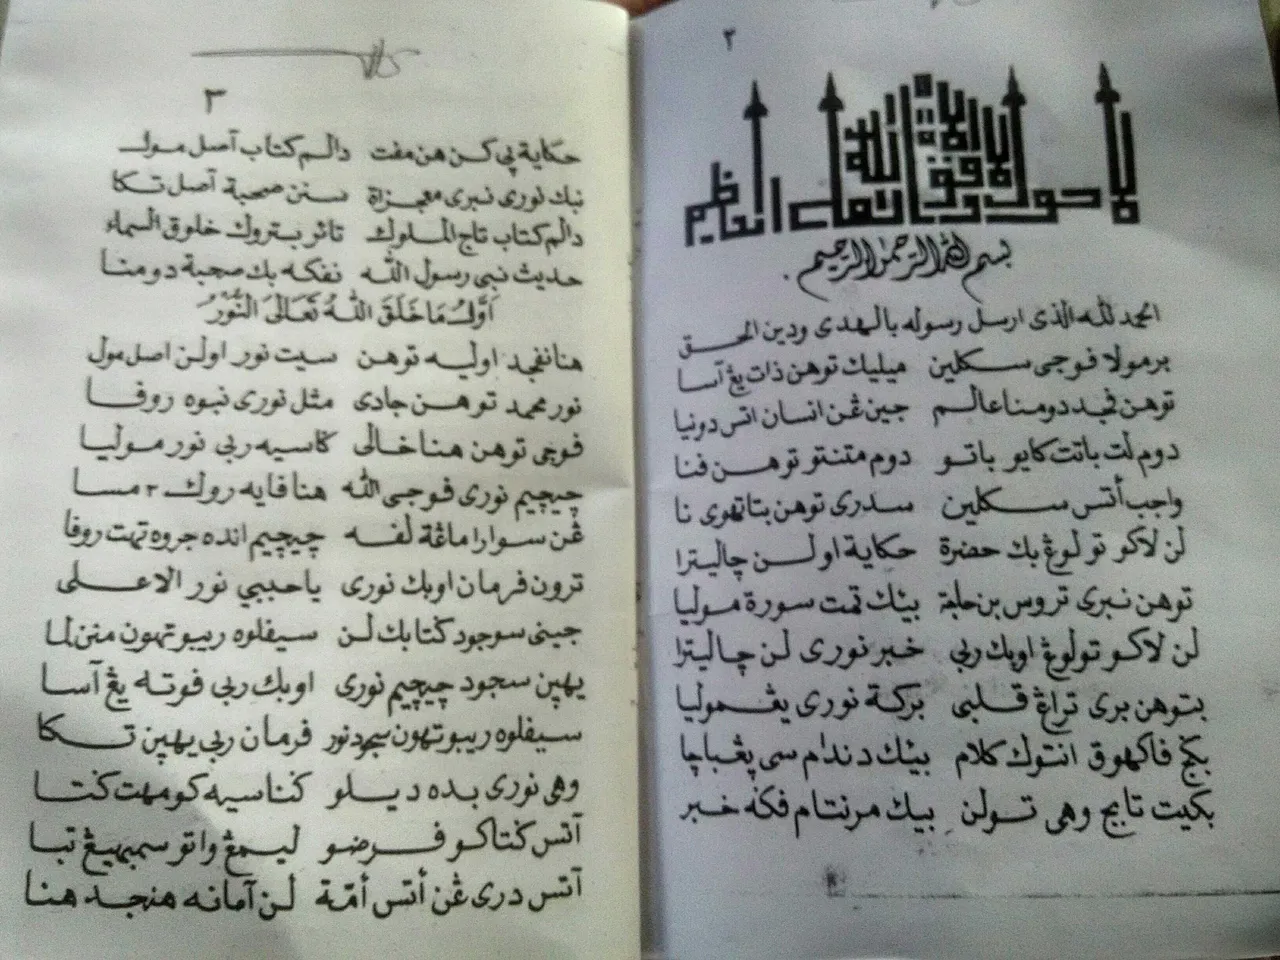 ٢
لا حول ولا قوة إلا بالله العلي العظيم
بسم الله الرحمن الرحيم
الحمد لله الذى ارسل رسوله بالهدى ودين الحق
برمولا فوجى سكلين ميليك توهن ذات يڠ آسا
توهن فجد دومنا عالم جين ڠن انسان اتس دونيا
دوم لت باتت كايو باتو دوم متنتو توهن فنا
واجب أتس سكلين سدرى توهن بتاتهوى نا
لن لاكو تولوڠ بك حضرة حكاية اولن چاليترا
توهن نبرى تروس بن حلمة بيئك تمت سورة موليا
لن لاكو تولوڠ اوبك ربي خبر نورى لن چاليترا
بتوهن برى تراڠ قلبى بركة نورى يڠموليا
بكچ فاكهوق انتوك كلام بيئك دندام سى يڠباچا
بكيت تابيچ وهى تولن بيك مرنتام فكه خبر
٣
حكاية ني كن هن مفت دالم كتاب آصل مول
نبك نورى نبرى معجزاة سنن صحبة آصل تكا
دالم كتاب تاج الملوك تاثر بتروك خلوق السماء
حديث نبى رسول الله نفكه بك صحبة دومنا
اَوَّلُ مَا خَلَقَ اللهُ تَعَالَىَ النُّوْرُ
هنا نفجد اوليه توهن سيت نور اولن اصل مول
نور محمد توهن جادى مثل نورى نبوه روفا
فوجي توهن هنا خالى كاسيه ربي نور موليا
چيچيم نورى فوجى الله هنا فايه روك ٢ مسا
ڠن سوارا ماڠة لفه چيچيم انده جروه تهت روفا
ترون فرمان اوبك نورى يا حبيبي نور الاعلى
جينى سوجود كتابك لن سيفلوه ريبو تهون منن لما
يهين سجود چيچيم نورى اوبك ربي فوته يڠ آسا
سيفلوه ريبو تهون سجود نور فرمان ربي يهين تكا
وهى نورى بده ديلو كناسيه كومهت كتا
آتس كتاكو فرضو ليمڠ واتو سمبهيڠ تبا
آتس درى ڠن أتس أمّة لن آمانه هنجد هنا